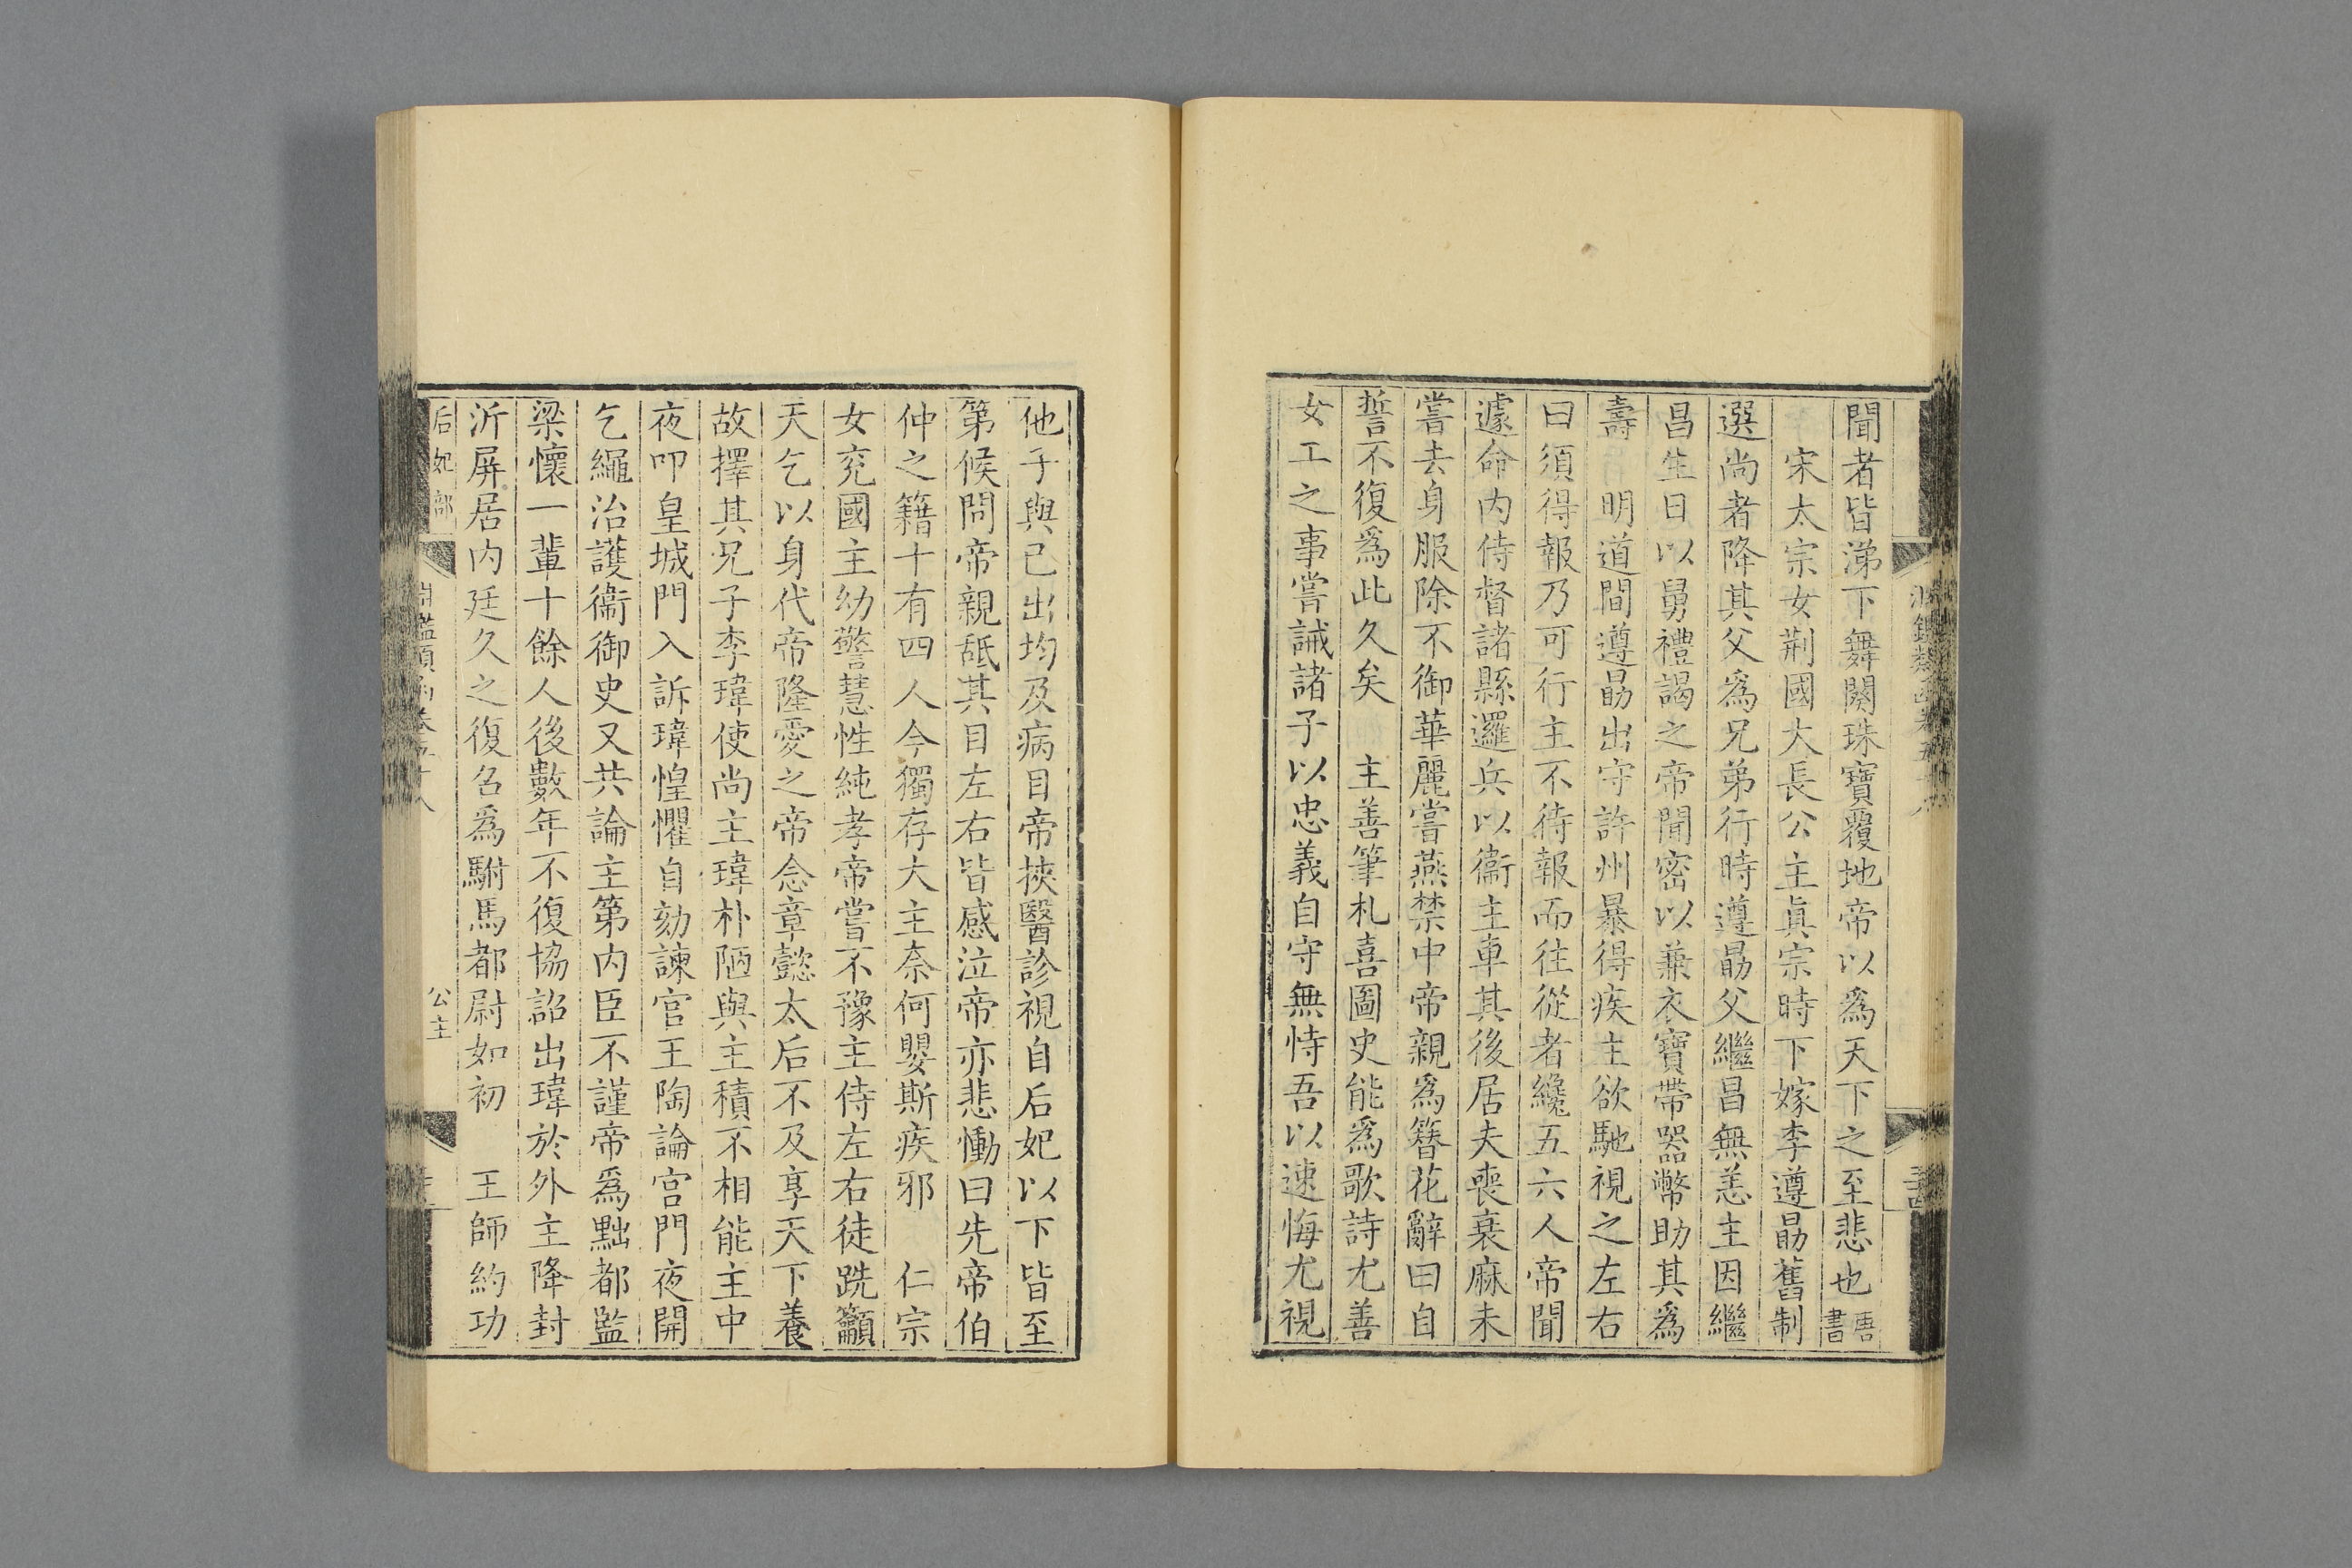 聞者皆涕下舞闋珠寶覆地帝以爲天下之至悲也唐書
宋太宗女荆國大長公主眞宗時下嫁李遵勗舊制
選尚者降其父爲兄弟行時遵勗父繼昌無恙主因繼
昌生日以舅禮謁之帝聞密以兼衣寶帶器幣助其爲
壽 明道間遵勗出守許州暴得疾主欲馳視之左右
曰須得報乃可行主不待報而往從者纔五六人帝聞
遽命内侍督諸縣邏兵以衞主車其後居夫喪衰麻未
嘗去身服除不御華麗嘗燕禁中帝親爲簪花辭曰自
誓不復爲此久矣 主善筆札喜圖史能爲歌詩尤善
女工之事嘗誡諸子以忠義自守無恃吾以速悔尤視
他子與已出均及病目帝挾醫診視自后妃以下皆至
第候問帝親舐其目左右皆感泣帝亦悲慟曰先帝伯
仲之籍十有四人今獨存大主奈何嬰斯疾邪 仁宗
女兖國主幼警慧性純孝帝嘗不豫主侍左右徒跣籲
天乞以身代帝隆愛之帝念章懿太后不及享天下養
故擇其兄子李瑋使尚主瑋朴陋與主積不相能主中
夜叩皇城門入訴瑋惶懼自劾諫官王陶論宫門夜開
乞繩治護衞御史又共論主第内臣不謹帝爲黜都監
梁懷一輩十餘人後數年不復協詔出瑋於外主降封
沂屏居内廷久之復名爲駙馬都尉如初 王師約功
后妃部 公主